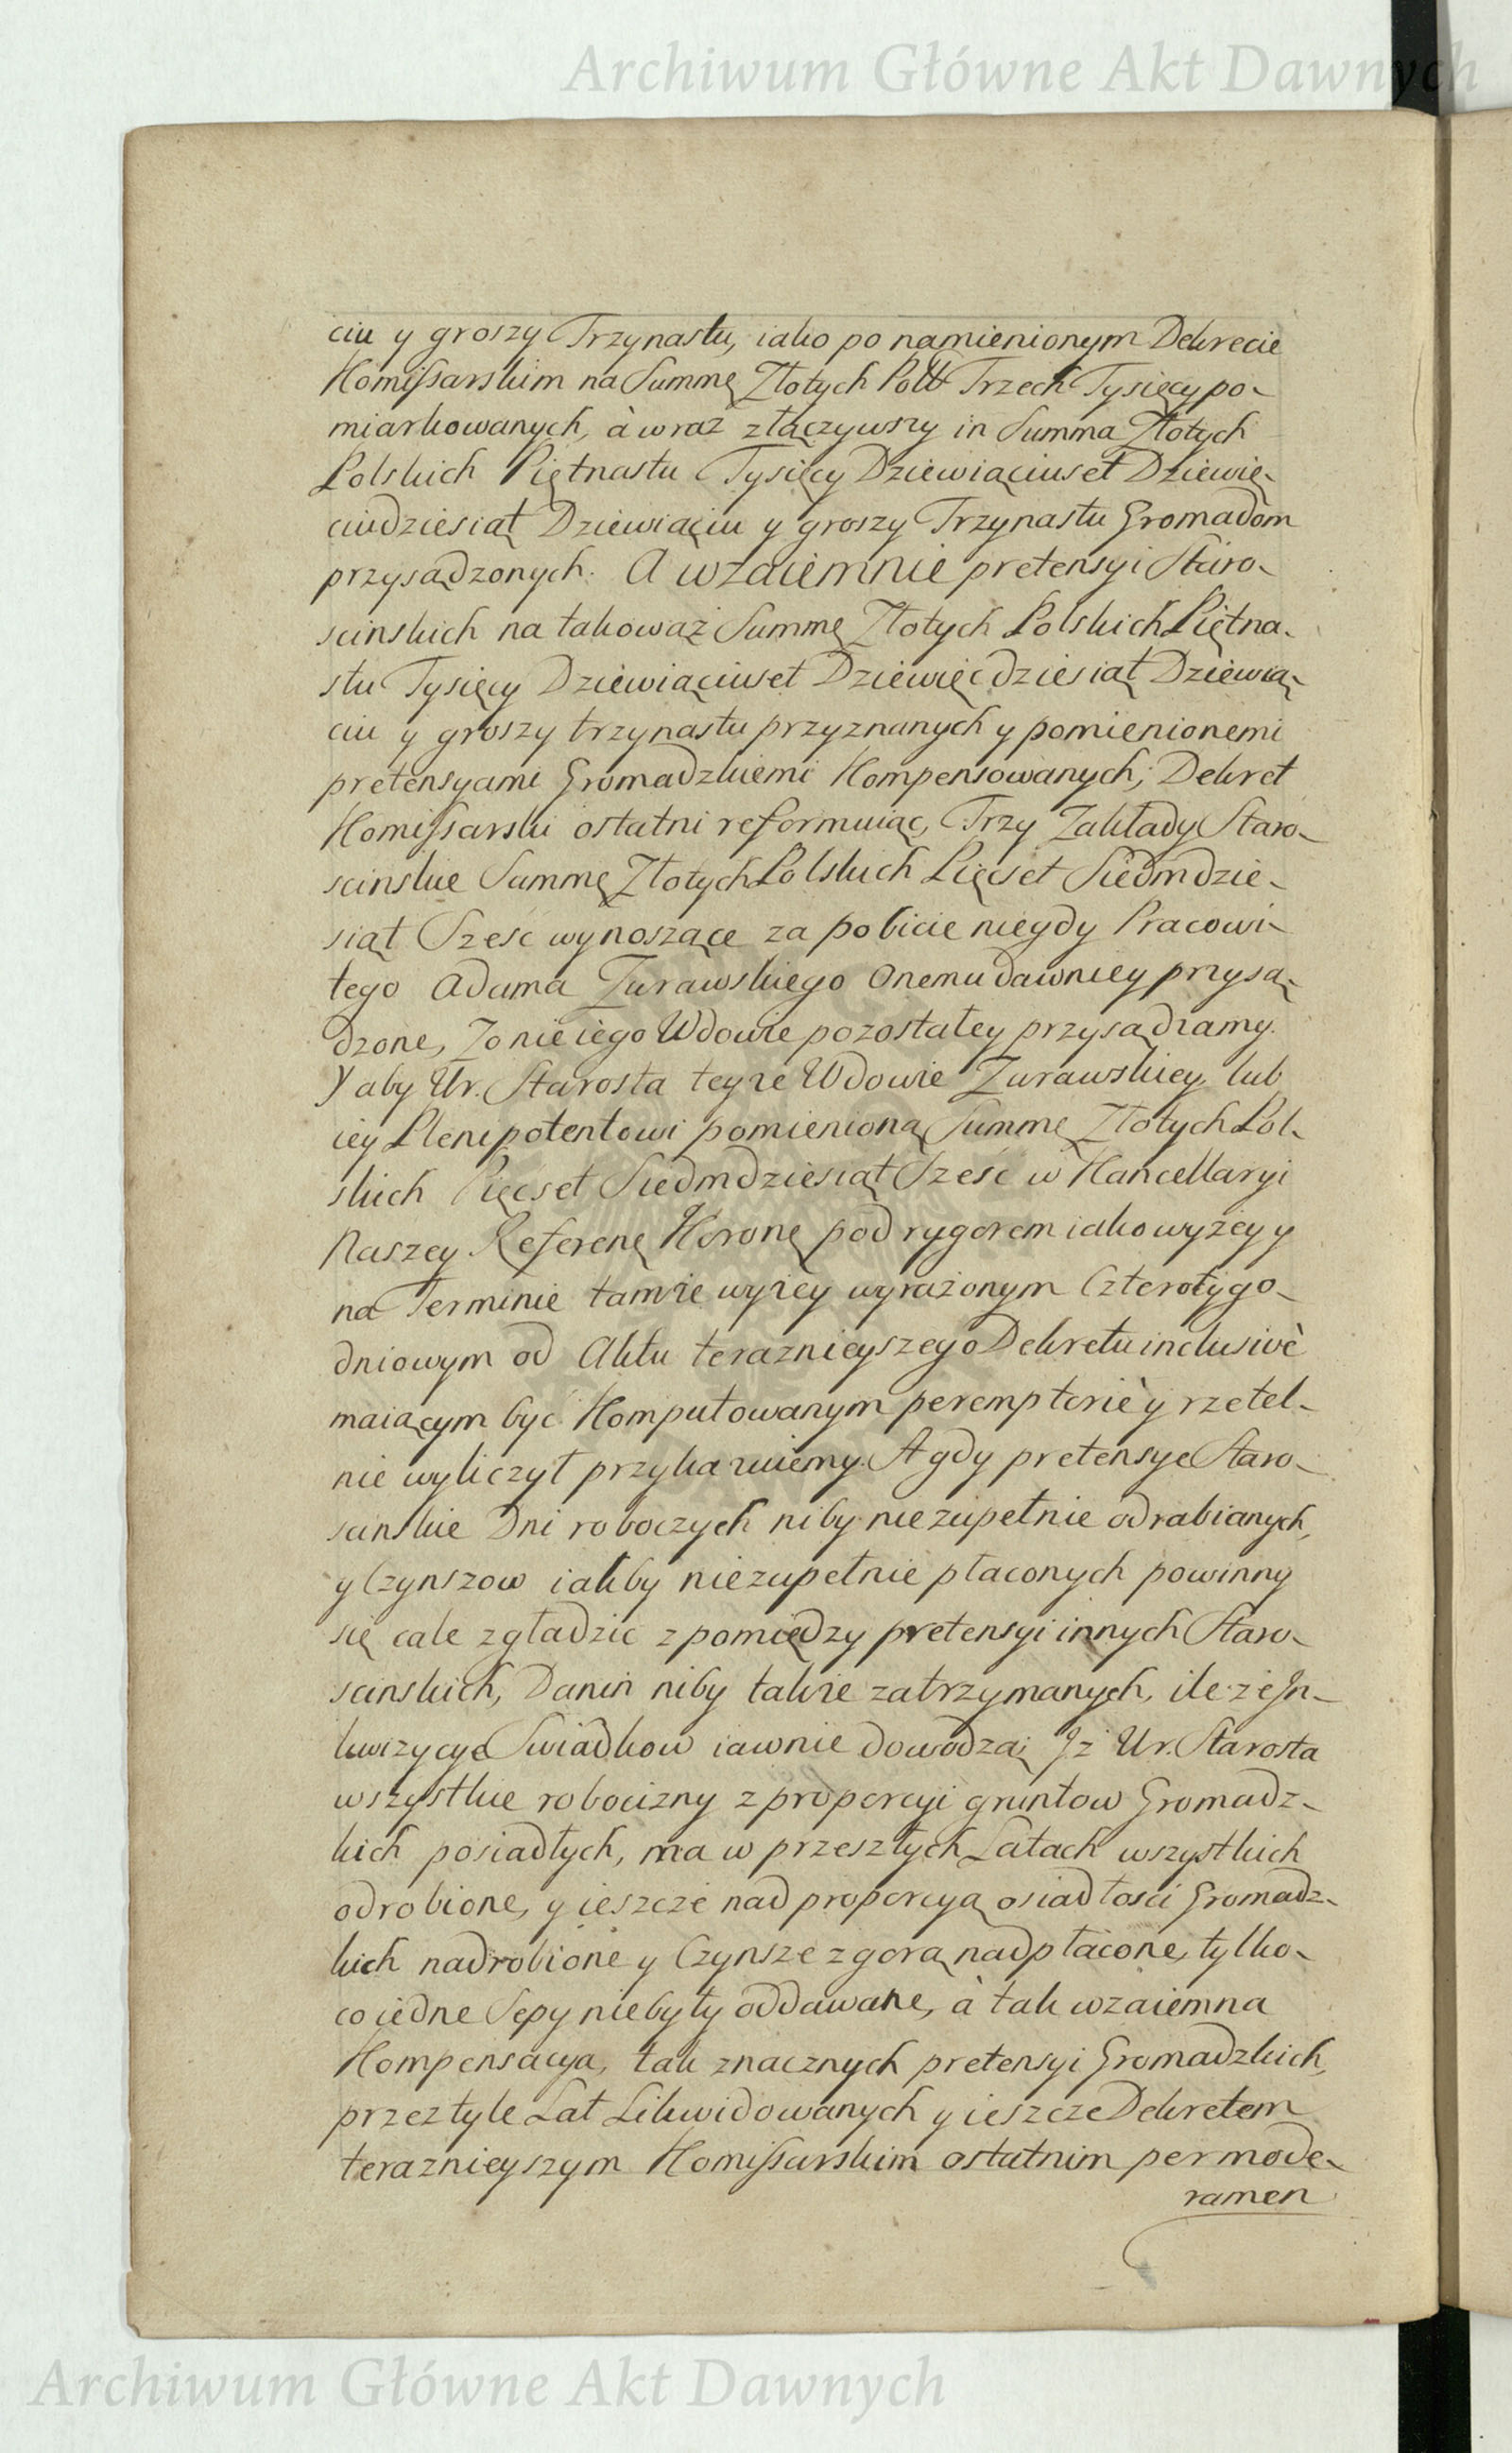 Archiwum Główne Akt Dawnych
ciu y groszy Trzynastu, iako po namienionym Dekrecie
Komissarskim na Summę Złotych Polł Trzech Tysięcy po-
miarkowanych, à wraz złączywszy in Summa Złotych
Polskich Piętnastu Tysięcy Dziewiąciuset Dziewię-
ciudziesiąt Dziewiąciu y groszy Trzynastu Gromadom
przysądzonych. A wzaiemnie pretensyi Staro-
scinskich na takowąż Summę Złotych Polskich Piętna-
stu Tysięcy Dziewiąciuset Dziewięcdziesiąt Dziewią-
ciu y groszy trzynastu przyznanych y pomienionemi
pretensyami Gromadzkiemi Kompensowanych; Dekret
Komissarski ostatni reformuiąc, Trzy Zakłady Staro-
scinskie Summę Złotych Polskich Pięcset Siedmdzie-
siąt Sześć wynoszące za pobicie niegdy Pracowi-
tego Adama Zurawskiego Onemu dawniey przysą-
dzone, Zonie iego Wdowie pozostałey przysądzamy.
Y aby Ur. Starosta teyże Wdowie Zurawskiey, lub
iey Plenipotentowi pomienioną Summę Złotych Pol-
skich Pięcset Siedmdziesiąt Sześć w Kancellaryi
Naszey Referenę Koronę pod rygorem iako wyżey y
na Terminie tamże wyżey wyrażonym Czterotygo-
dniowym od Aktu teraznieyszego Dekretu inclusivè
maiącym być Komputowanym peremptoriè y rzetel-
nie wyliczył przykazuiemy. A gdy pretensye Staro-
scinskie Dni roboczych niby niezupełnie odrabianych,
y Czynszow iakby niezupełnie płaconych powinny
się cale zgładzić z pomiędzy pretensyi innych Staro-
scinskich, Danin niby takie zatrzymanych, ile że In-
kwizycye Swiadkow iawnie dowodzą; Iż Ur. Starosta
wszystkie robocizny z proporcyi gruntow Gromadz-
kich posiadłych, ma w przeszłych Latach wszystkich
odrobione, y ieszcze nad proporcyą osiadłosci Gromadz-
kich nadrobione y Czynsze z gorą nadpłacone, tylko-
co iedne Sepy niebyły oddawane, à tak wzaiemna
Kompensacya, tak znacznych pretensyi Gromadzkich,
przez tyle Lat Likwidowanych y ieszcze Dekretem
teraznieyszym Komissarskim ostatnim per mode-
ramen
Archiwum Główne Akt Dawnych